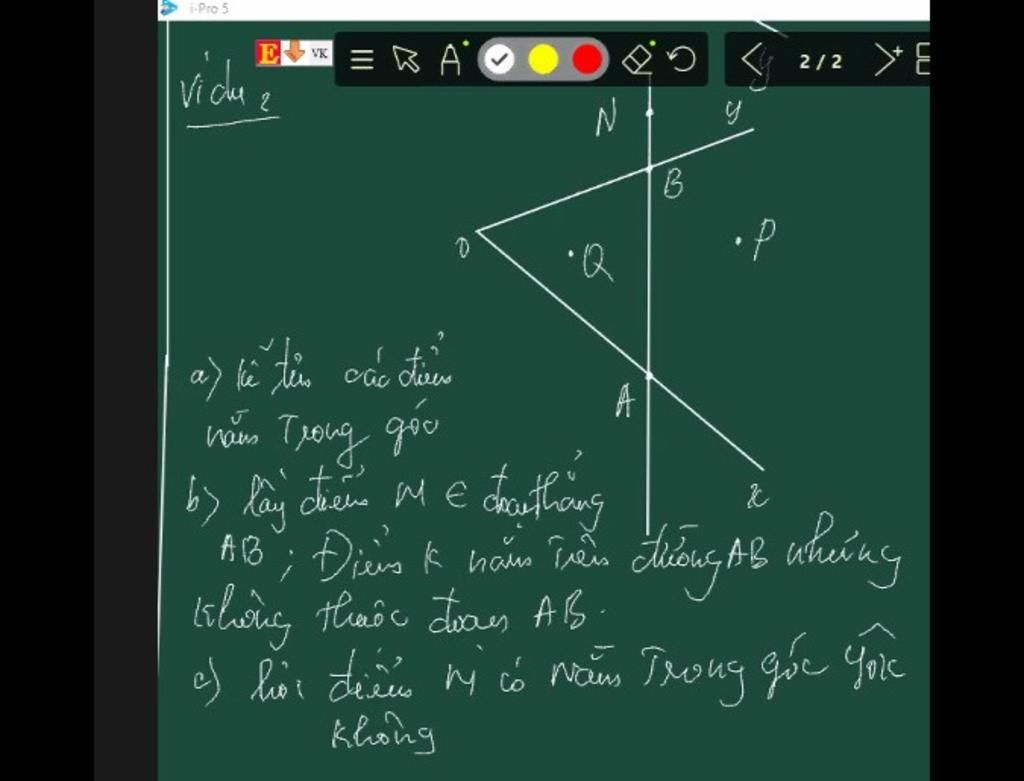 i-Pro 5
E VK
A
2 / 2
Ví dụ 2
N
y
B
O
Q
P
A
x
a) kể tên các điểm
nằm Trong góc
b) lấy điểm M ∈ đoạn thẳng
AB ; Điểm K nằm Trên đường AB nhưng
không thuộc đoạn AB.
c) hỏi điểm M có nằm Trong góc yOx
không